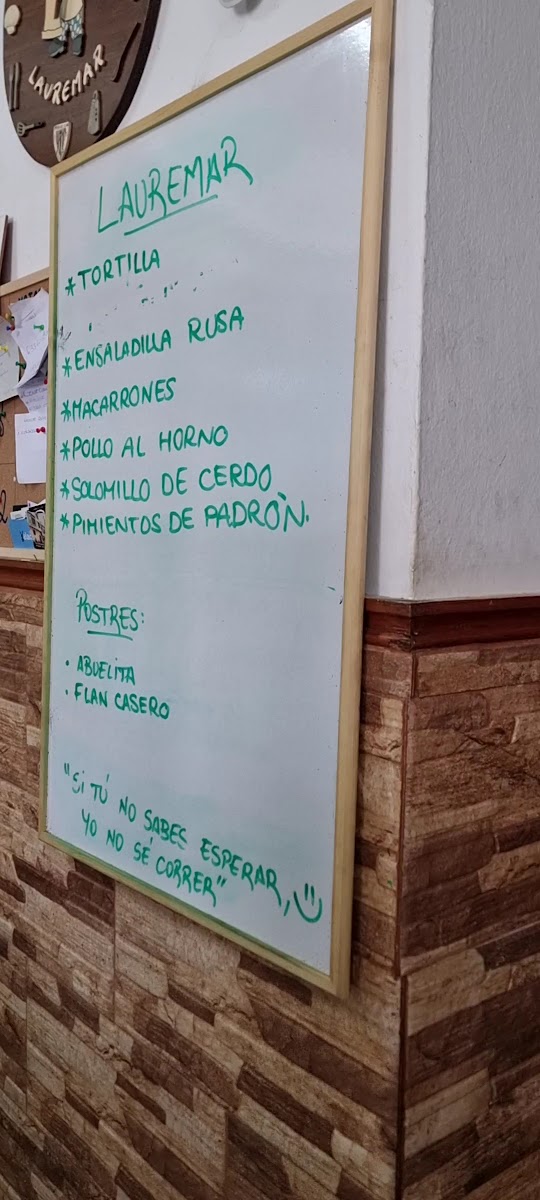 LAUREMAR
LAUREMAR
*TORTILLA
*ENSALADILLA RUSA
*MACARRONES
*POLLO AL HORNO
*SOLOMILLO DE CERDO
*PIMIENTOS DE PADRÒN.
POSTRES:
· ABUELITA
· FLAN CASERO
"Si TÚ NO SABES ESPERAR,
YO NO SÉ CORRER"